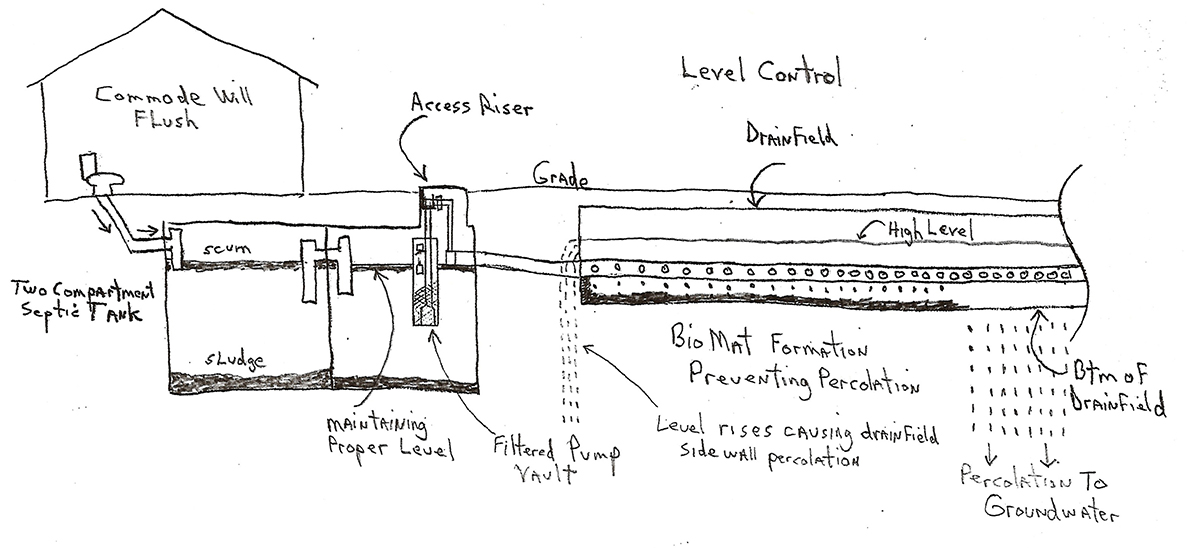 Level Control
Commode Will
Flush
Access Riser
Drainfield
Grade
High Level
scum
Two Compartment
Septic Tank
sludge
BioMat Formation
Preventing Percolation
Btm of
Drainfield
maintaining
Proper Level
Filtered Pump
Vault
Level rises causing drainfield
side wall percolation
Percolation To
Groundwater